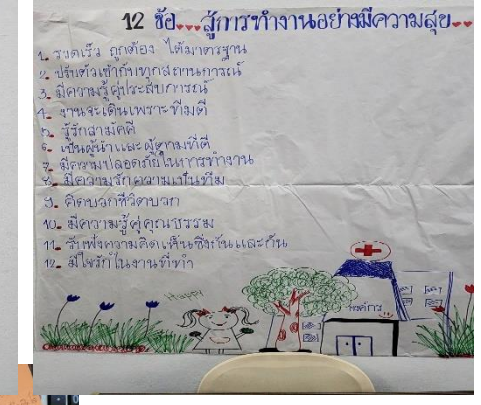 12 ข้อ...สู่การทำงานอย่างมีความสุข..
1. รวดเร็ว ถูกต้อง ได้มาตรฐาน
2. ปรับตัวเข้ากับทุกสถานการณ์
3. มีความรู้คู่ประสบการณ์
4. งานจะเดินเพราะทีมดี
5. รู้รักสามัคคี
6. เป็นผู้นำและผู้ตามที่ดี
7. มีความปลอดภัยในการทำงาน
8. มีความรักความเป็นทีม
9. คิดบวกชีวิตบวก
10. มีความรู้คู่คุณธรรม
11. รับฟังความคิดเห็นซึ่งกันและกัน
12. มีใจรักในงานที่ทำ
Happy
องค์กร